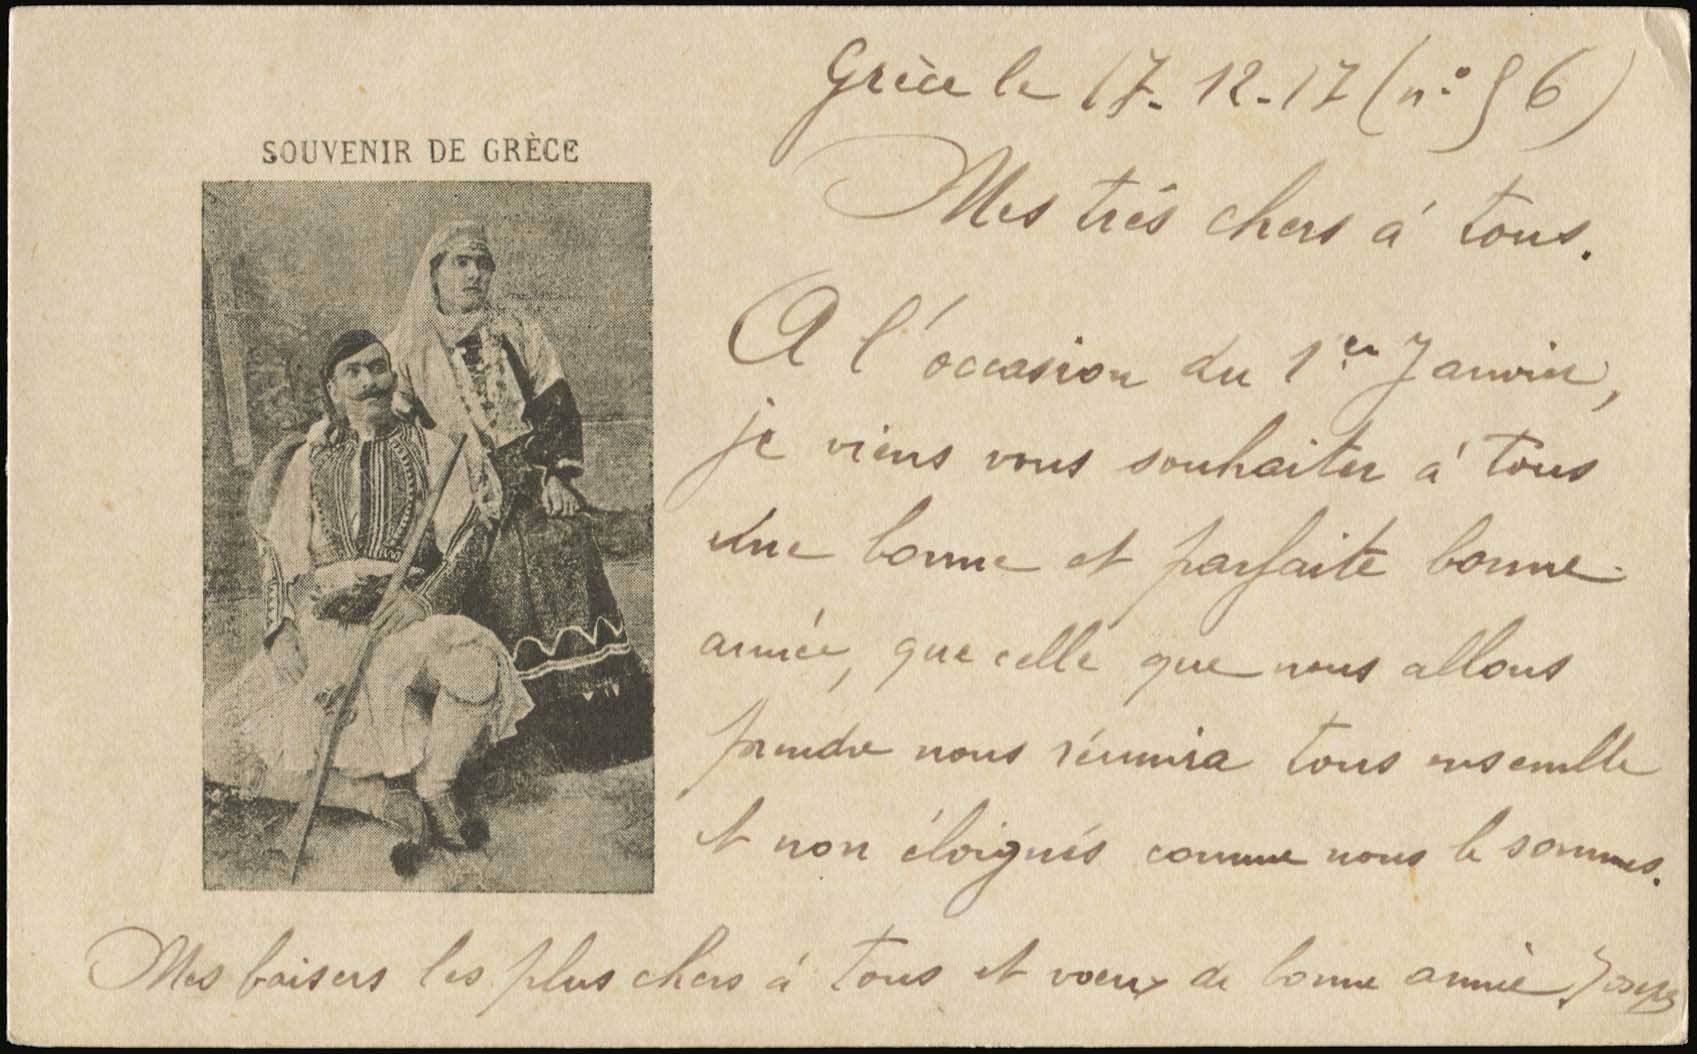 SOUVENIR DE GRÈCE
Grèce le 17-12-17 (n° 56)
Mes très chers à tous.
A l'occasion du 1er Janvier,
je viens vous souhaiter à tous
une bonne et parfaite bonne
année, que celle que nous allons
prendre nous réunira tous ensemble
et non éloignés comme nous le sommes.
Mes baisers les plus chers à tous et voeux de bonne année.